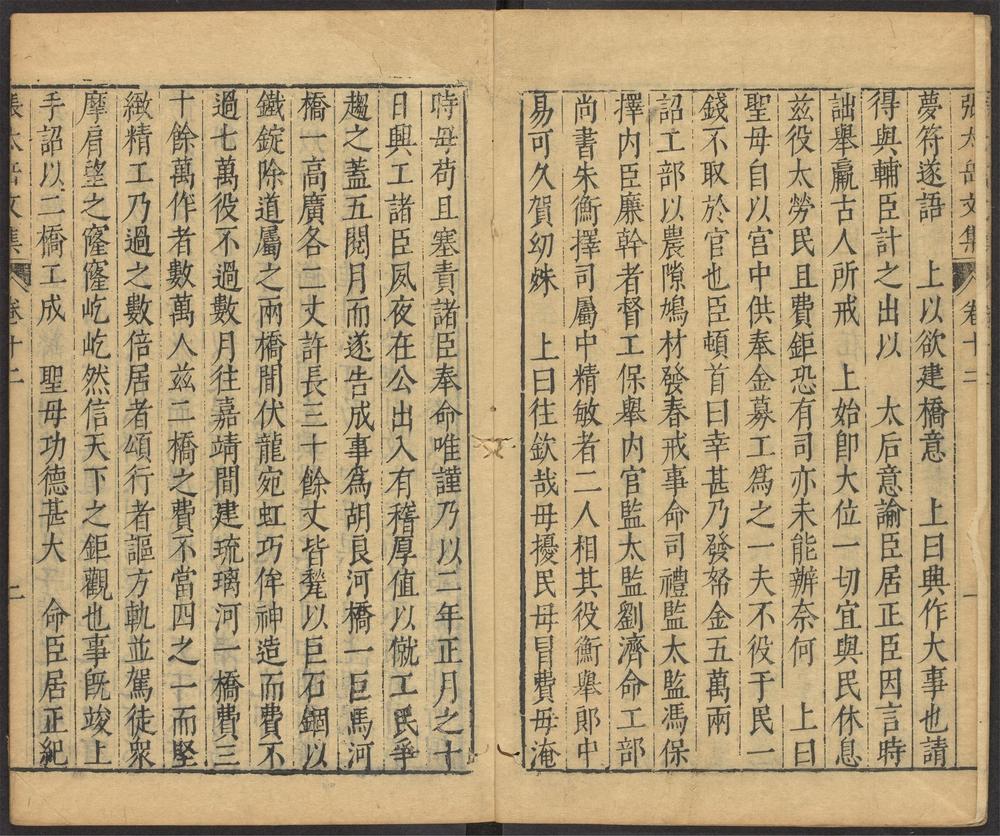 張太岳文集 卷十二 一
夢符遂語 上以欲建橋意 上曰興作大事也請
得與輔臣計之出以 太后意諭臣居正臣因言時
詘舉贏古人所戒 上始卽大位一切宜與民休息
茲役太勞民且費鉅恐有司亦未能辦奈何 上曰
聖母自以宮中供奉金募工爲之一夫不役于民一
錢不取於官也臣頓首曰幸甚乃發帑金五萬兩
詔工部以農隙鳩材發春戒事命司禮監太監馮保
擇內臣廉幹者督工保舉內官監太監劉濟命工部
尚書朱衡擇司屬中精敏者二人相其役衡舉郎中
易可久賀幼殊 上曰往欽哉毋擾民毋冒費毋淹
時毋苟且塞責諸臣奉命唯謹乃以二年正月之十
日興工諸臣夙夜在公出入有稽厚值以僦工民爭
趨之蓋五閱月而遂告成事爲胡良河橋一巨馬河
橋一高廣各二丈許長三十餘丈皆甃以巨石錮以
鐵錠除道屬之兩橋間伏龍宛虹巧侔神造而費不
過七萬役不過數月往嘉靖間建琉璃河一橋費三
十餘萬作者數萬人茲二橋之費不當四之一而堅
緻精工乃過之數倍居者頌行者謳方軌並駕徒衆
摩肩望之窿窿屹屹然信天下之鉅觀也事既竣上
手詔以二橋工成 聖母功德甚大 命臣居正紀
張太岳文集 卷十二 二